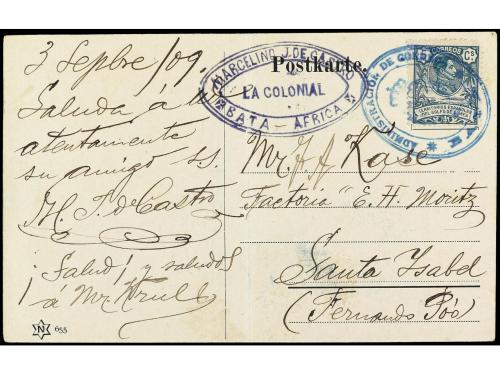 3 Sepbre/09.
Saluda á la
atentamente
su amigo s.s.
M. J. de Castro
¡Salud! y saludos
á Mr Krull
N 655
Postkarte.
MARCELINO J. DE CASTRO
LA COLONIAL
BATA - AFRICA
CORREOS
TERRITORIOS ESPAÑOLES
DEL GOLFO DE GUINEA
ADMINISTRACION DE
Mr. Kase
Factoria "E. H. Moritz
Santa Isabel
(Fernando Póo)